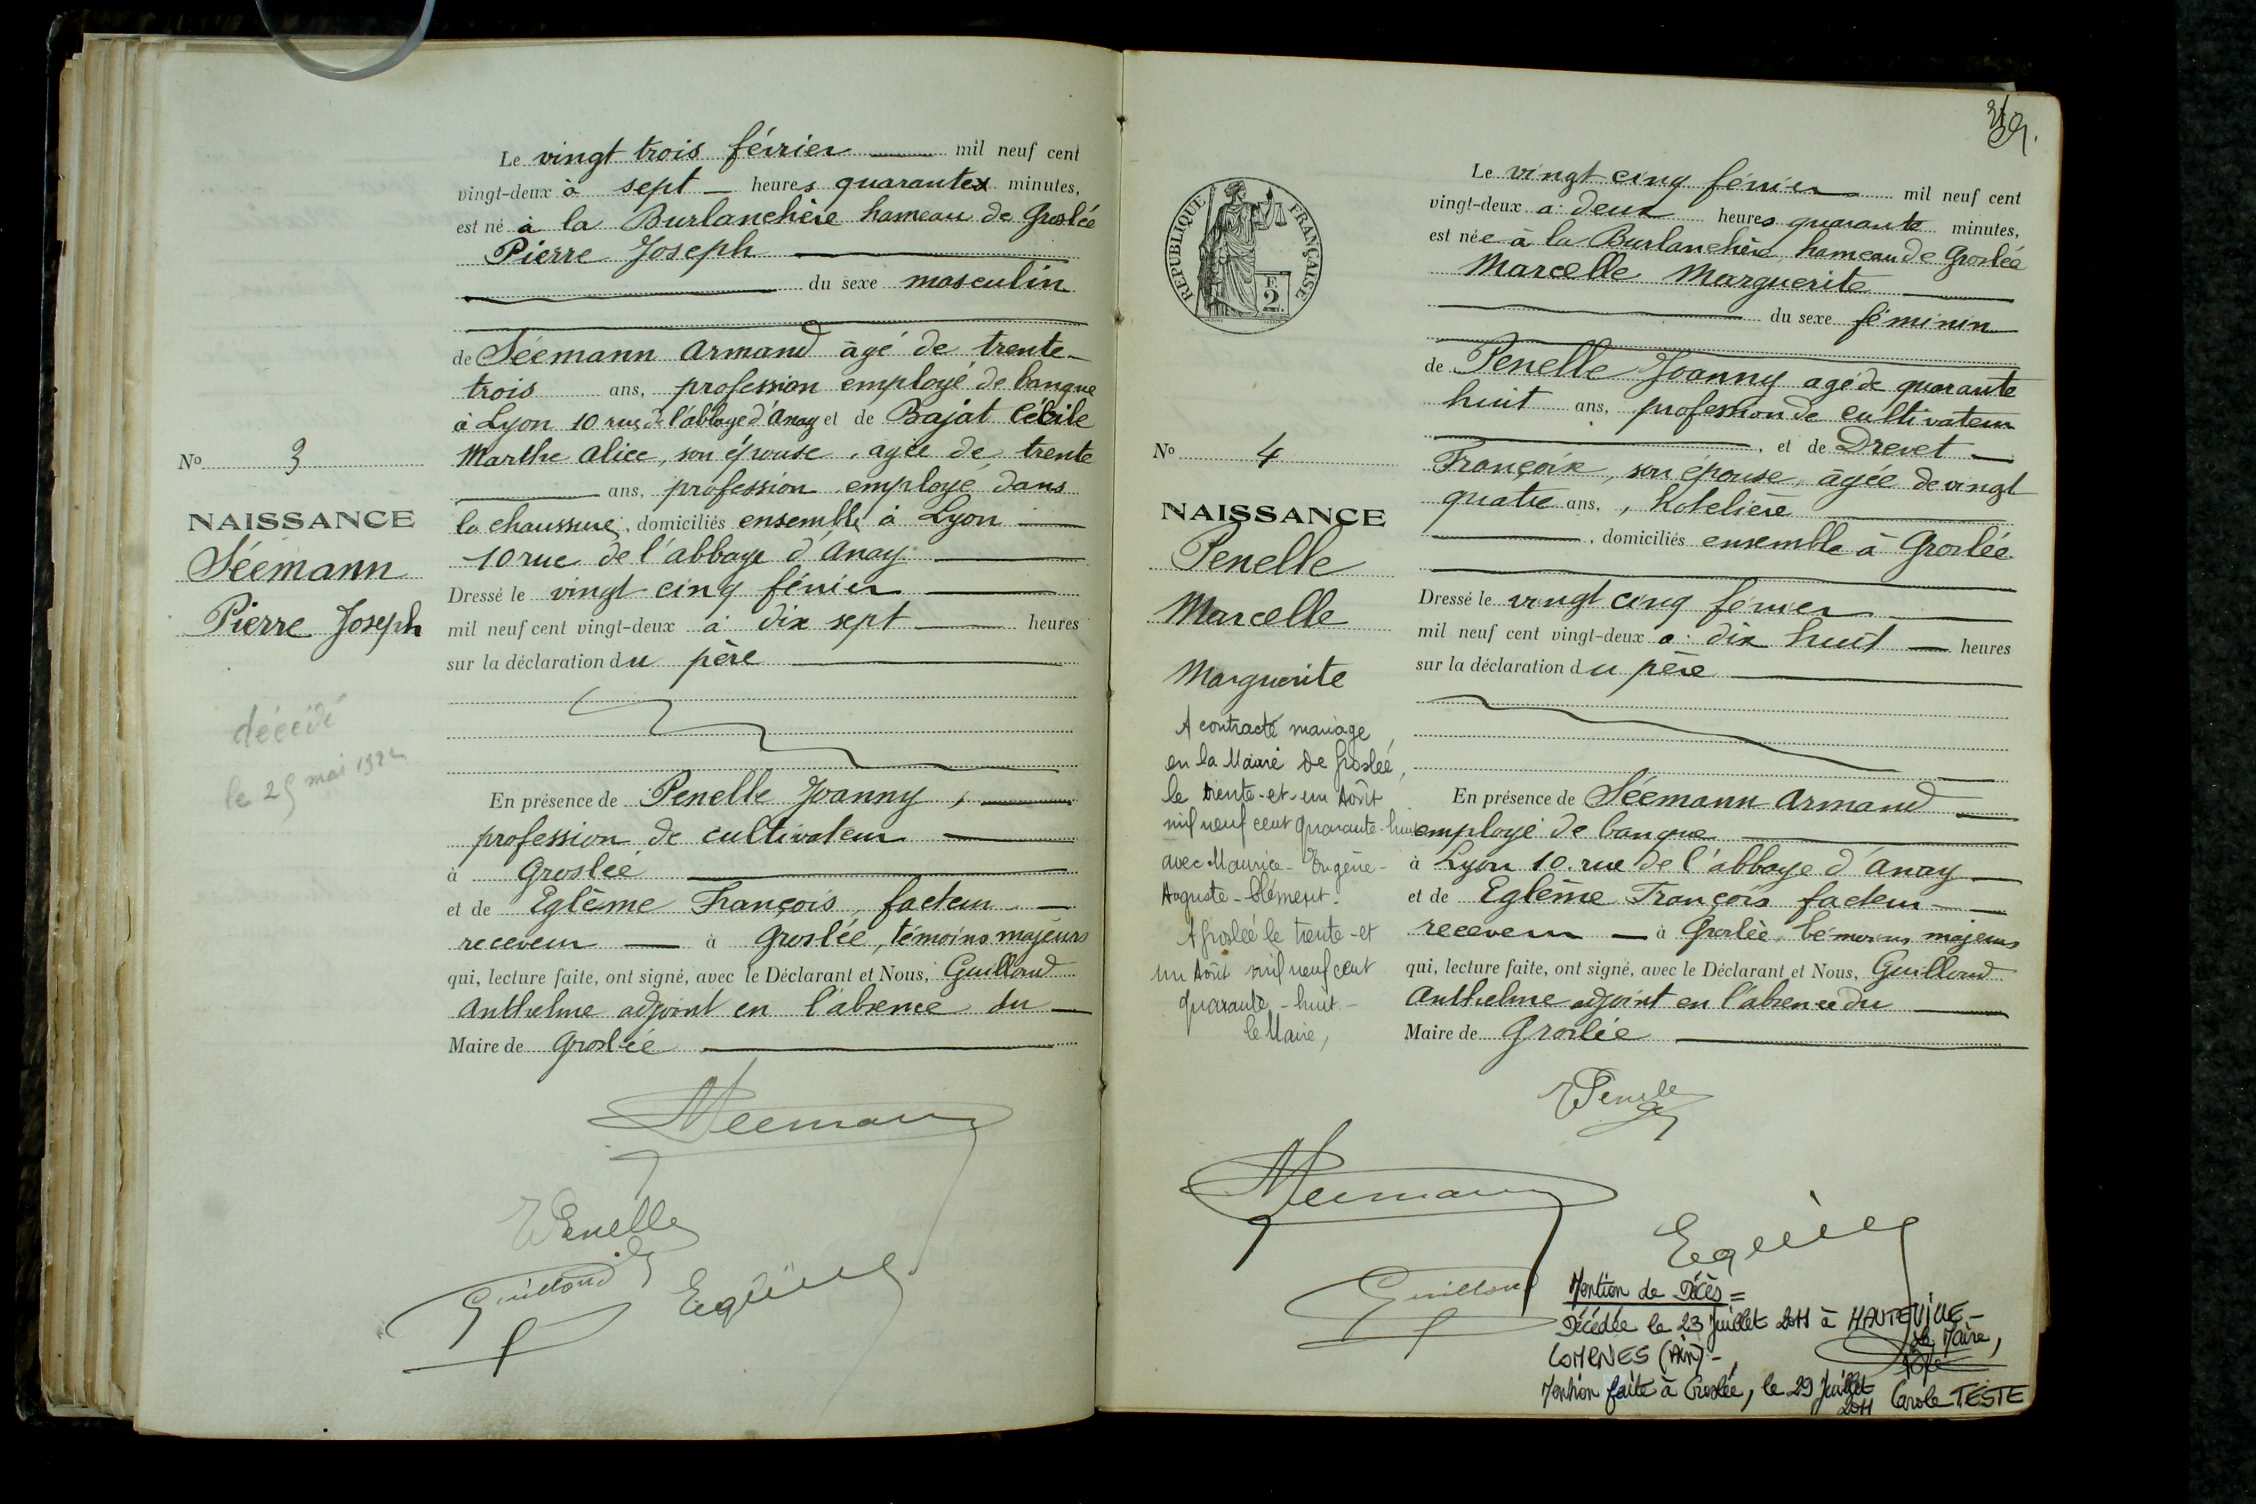 Le vingt trois février mil neuf cent
vingt-deux à sept heures quarante minutes,
est né à la Burlanchère hameau de Groslée
Pierre Joseph
du sexe masculin
de Séemann Armand âgé de trente
trois ans, profession employé de banque
à Lyon 10 rue de l'abbaye d'Anay et de Bajat Cécile
Marthe Alice, son épouse, agée de trente
ans, profession employé dans
la chaussure, domiciliés ensemble à Lyon
10 rue de l'abbaye d'Anay
Dressé le vingt cinq février
mil neuf cent vingt-deux à dix sept heures
sur la déclaration du père
En présence de Penelle Joanny,
profession de cultivateur
à Groslée
et de Eglème François, facteur
receveur à Groslée, témoins majeurs
qui, lecture faite, ont signé, avec le Déclarant et Nous, Guilloud
Anthelme adjoint en l'absence du
Maire de Groslée
Nº 3
NAISSANCE
Séemann
Pierre Joseph
décédé
le 25 mai 1922
Séemann
Penelle
Guilloud
Eglème
39.
RÉPUBLIQUE FRANÇAISE
2F.
Le vingt cinq février mil neuf cent
vingt-deux à deux heures quarante minutes,
est née à la Burlanchère hameau de Groslée
Marcelle Marguerite
du sexe féminin
de Penelle Joanny agé de quarante
huit ans, profession de cultivateur
, et de Drevet
Françoise, son épouse, âgée de vingt
quatre ans, , hotelière
, domiciliés ensemble à Groslée
Dressé le vingt cinq février
mil neuf cent vingt-deux à dix huit heures
sur la déclaration du père
En présence de Séemann Armand
employé de banque
à Lyon 10 rue de l'abbaye d'Anay
et de Eglème François facteur
receveur à Groslée, témoins majeurs
qui, lecture faite, ont signé, avec le Déclarant et Nous, Guilloud
Anthelme adjoint en l'absence du
Maire de Groslée
Nº 4
NAISSANCE
Penelle
Marcelle
Marguerite
A contracté mariage
en la Mairie de Groslée,
le trente-et-un Août
mil neuf cent quarante-huit
avec Maurice-Eugène-
Auguste-Clément.
A Groslée le trente-et
un Août mil neuf cent
quarante-huit-
le Maire,
Penelle
Séemann
Eglème
Guilloud
Mention de Décès =
Décédée le 23 Juillet 2011 à HAUTEVILLE-
LOMPNES (AIN)-
Le Maire,
Mention faite à Groslée, le 29 Juillet
2011
Carole TESTE